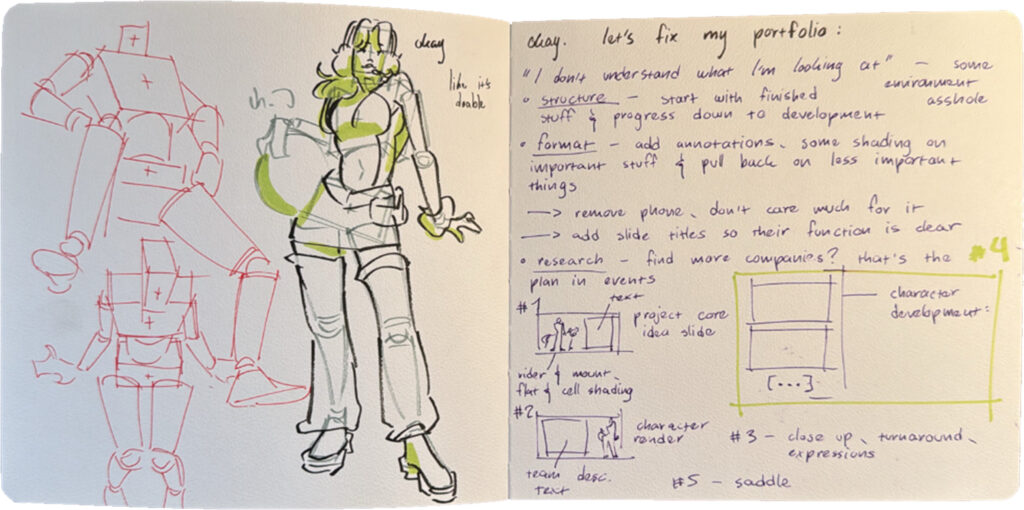 okay
like it's
doable
oh :)
okay. let's fix my portfolio:
"I don't understand what I'm looking at" – some
environment
asshole
• structure – start with finished
stuff & progress down to development
• format – add annotations, some shading on
important stuff & pull back on less important
things
—> remove phone, don't care much for it
—> add slide titles so their function is clear
• research – find more companies? that's the
plan in events
#4
#1
text
project core
idea slide
rider & mount,
flat & cell shading
character
development:
[...]
#2
character
render
team desc.
text
#3 – close up, turnaround,
expressions
#5 – saddle